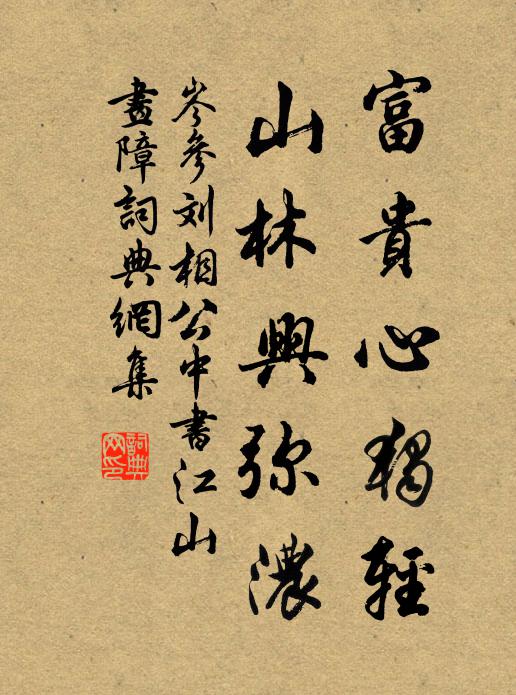 富貴心獨輕
山林興弥濃
岑參刘相公中書江山
畫障詞典網集
詞典网印